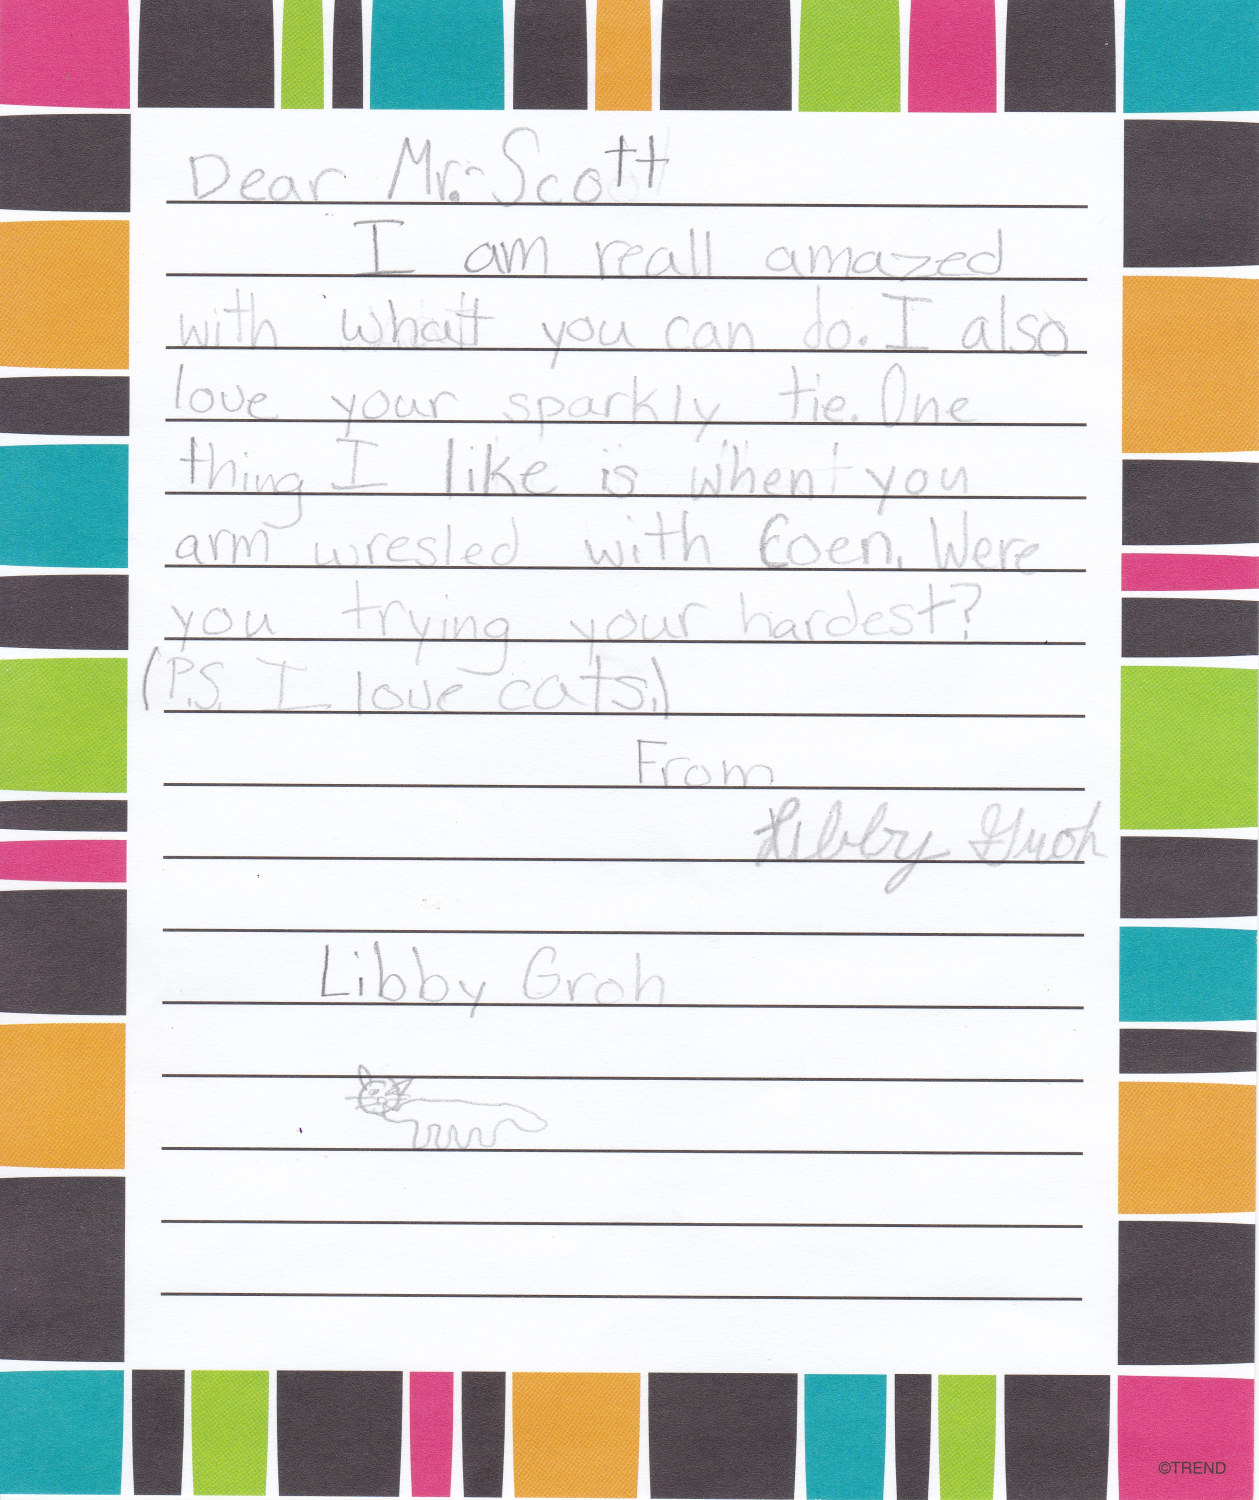 Dear Mr. Scott
I am reall amazed
with what you can do. I also
love your sparkly tie. One
thing I like is when you
arm wresled with Coen. Were
you trying your hardest?
(P.S. I love cats.)
From
Libby Groh
Libby Groh
©TREND